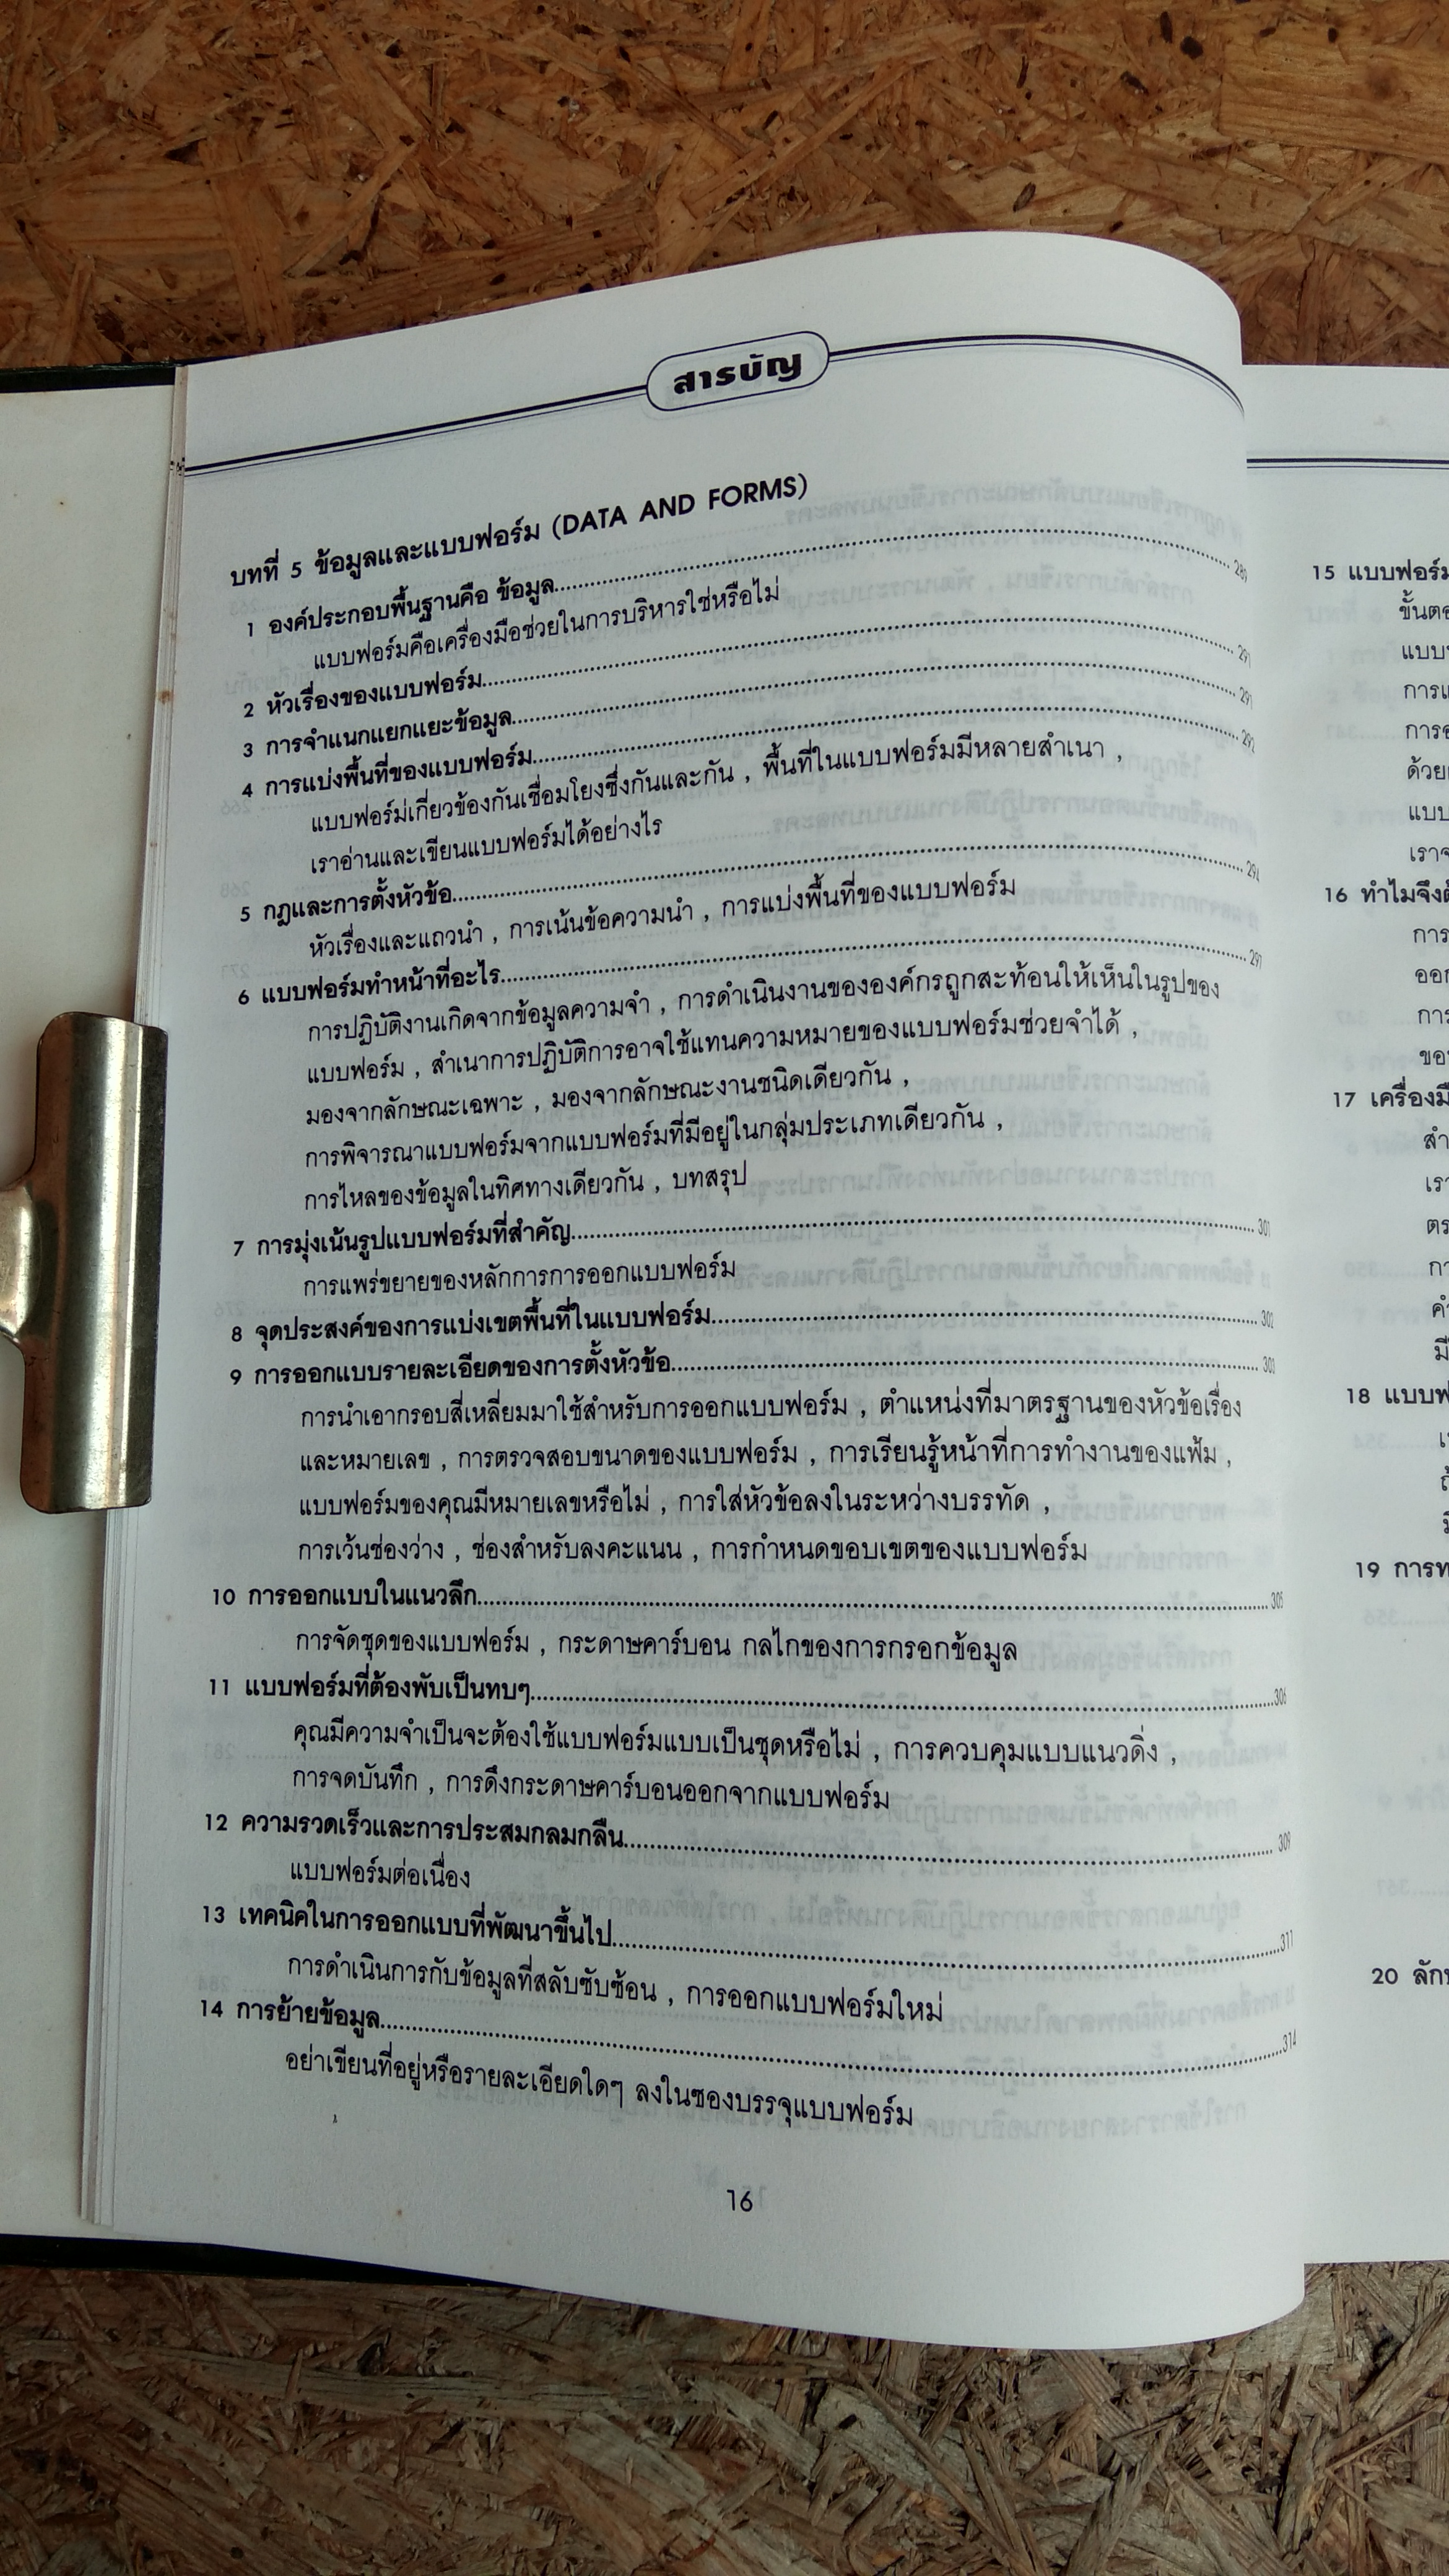 สารบัญ
บทที่ 5 ข้อมูลและแบบฟอร์ม (DATA AND FORMS)
1 องค์ประกอบพื้นฐานคือ ข้อมูล....................289
แบบฟอร์มคือเครื่องมือช่วยในการบริหารใช่หรือไม่
2 หัวเรื่องของแบบฟอร์ม....................291
3 การจำแนกแยกแยะข้อมูล....................291
4 การแบ่งพื้นที่ของแบบฟอร์ม....................292
แบบฟอร์มเกี่ยวข้องกันเชื่อมโยงซึ่งกันและกัน , พื้นที่ในแบบฟอร์มมีหลายสำเนา ,
เราอ่านและเขียนแบบฟอร์มได้อย่างไร
5 กฎและการตั้งหัวข้อ....................294
หัวเรื่องและแถวนำ , การเน้นข้อความนำ , การแบ่งพื้นที่ของแบบฟอร์ม
6 แบบฟอร์มทำหน้าที่อะไร....................297
การปฏิบัติงานเกิดจากข้อมูลความจำ , การดำเนินงานขององค์กรถูกสะท้อนให้เห็นในรูปของ
แบบฟอร์ม , สำเนาการปฏิบัติการอาจใช้แทนความหมายของแบบฟอร์มช่วยจำได้ ,
มองจากลักษณะเฉพาะ , มองจากลักษณะงานชนิดเดียวกัน ,
การพิจารณาแบบฟอร์มจากแบบฟอร์มที่มีอยู่ในกลุ่มประเภทเดียวกัน ,
การไหลของข้อมูลในทิศทางเดียวกัน , บทสรุป
7 การมุ่งเน้นรูปแบบฟอร์มที่สำคัญ....................301
การแพร่ขยายของหลักการการออกแบบฟอร์ม
8 จุดประสงค์ของการแบ่งเขตพื้นที่ในแบบฟอร์ม....................302
9 การออกแบบรายละเอียดของการตั้งหัวข้อ....................303
การนำเอากรอบสี่เหลี่ยมมาใช้สำหรับการออกแบบฟอร์ม , ตำแหน่งที่มาตรฐานของหัวข้อเรื่อง
และหมายเลข , การตรวจสอบขนาดของแบบฟอร์ม , การเรียนรู้หน้าที่การทำงานของแฟ้ม ,
แบบฟอร์มของคุณมีหมายเลขหรือไม่ , การใส่หัวข้อลงในระหว่างบรรทัด ,
การเว้นช่องว่าง , ช่องสำหรับลงคะแนน , การกำหนดขอบเขตของแบบฟอร์ม
10 การออกแบบในแนวลึก....................305
การจัดชุดของแบบฟอร์ม , กระดาษคาร์บอน กลไกของการกรอกข้อมูล
11 แบบฟอร์มที่ต้องพับเป็นทบๆ....................306
คุณมีความจำเป็นจะต้องใช้แบบฟอร์มแบบเป็นชุดหรือไม่ , การควบคุมแบบแนวดิ่ง ,
การจดบันทึก , การดึงกระดาษคาร์บอนออกจากแบบฟอร์ม
12 ความรวดเร็วและการประสมกลมกลืน....................309
แบบฟอร์มต่อเนื่อง
13 เทคนิคในการออกแบบที่พัฒนาขึ้นไป....................311
การดำเนินการกับข้อมูลที่สลับซับซ้อน , การออกแบบฟอร์มใหม่
14 การย้ายข้อมูล....................314
อย่าเขียนที่อยู่หรือรายละเอียดใดๆ ลงในซองบรรจุแบบฟอร์ม
16
15 แบบฟอร์ม
16 ทำไมจึง
17 เครื่องมือ
18 แบบฟ
19 การ
20 ลัก